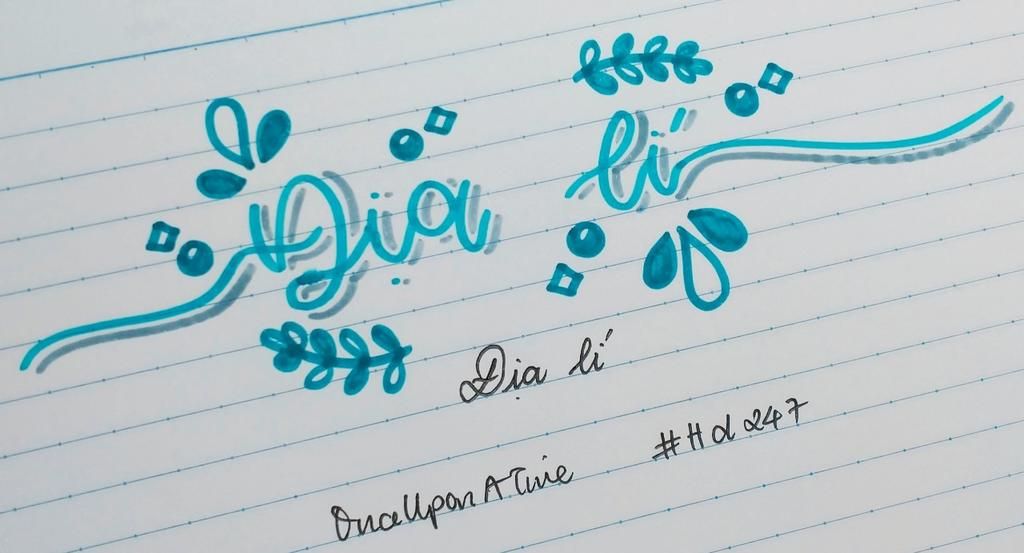 Địa lí
Địa lí
#Hd247
OnceUponATime